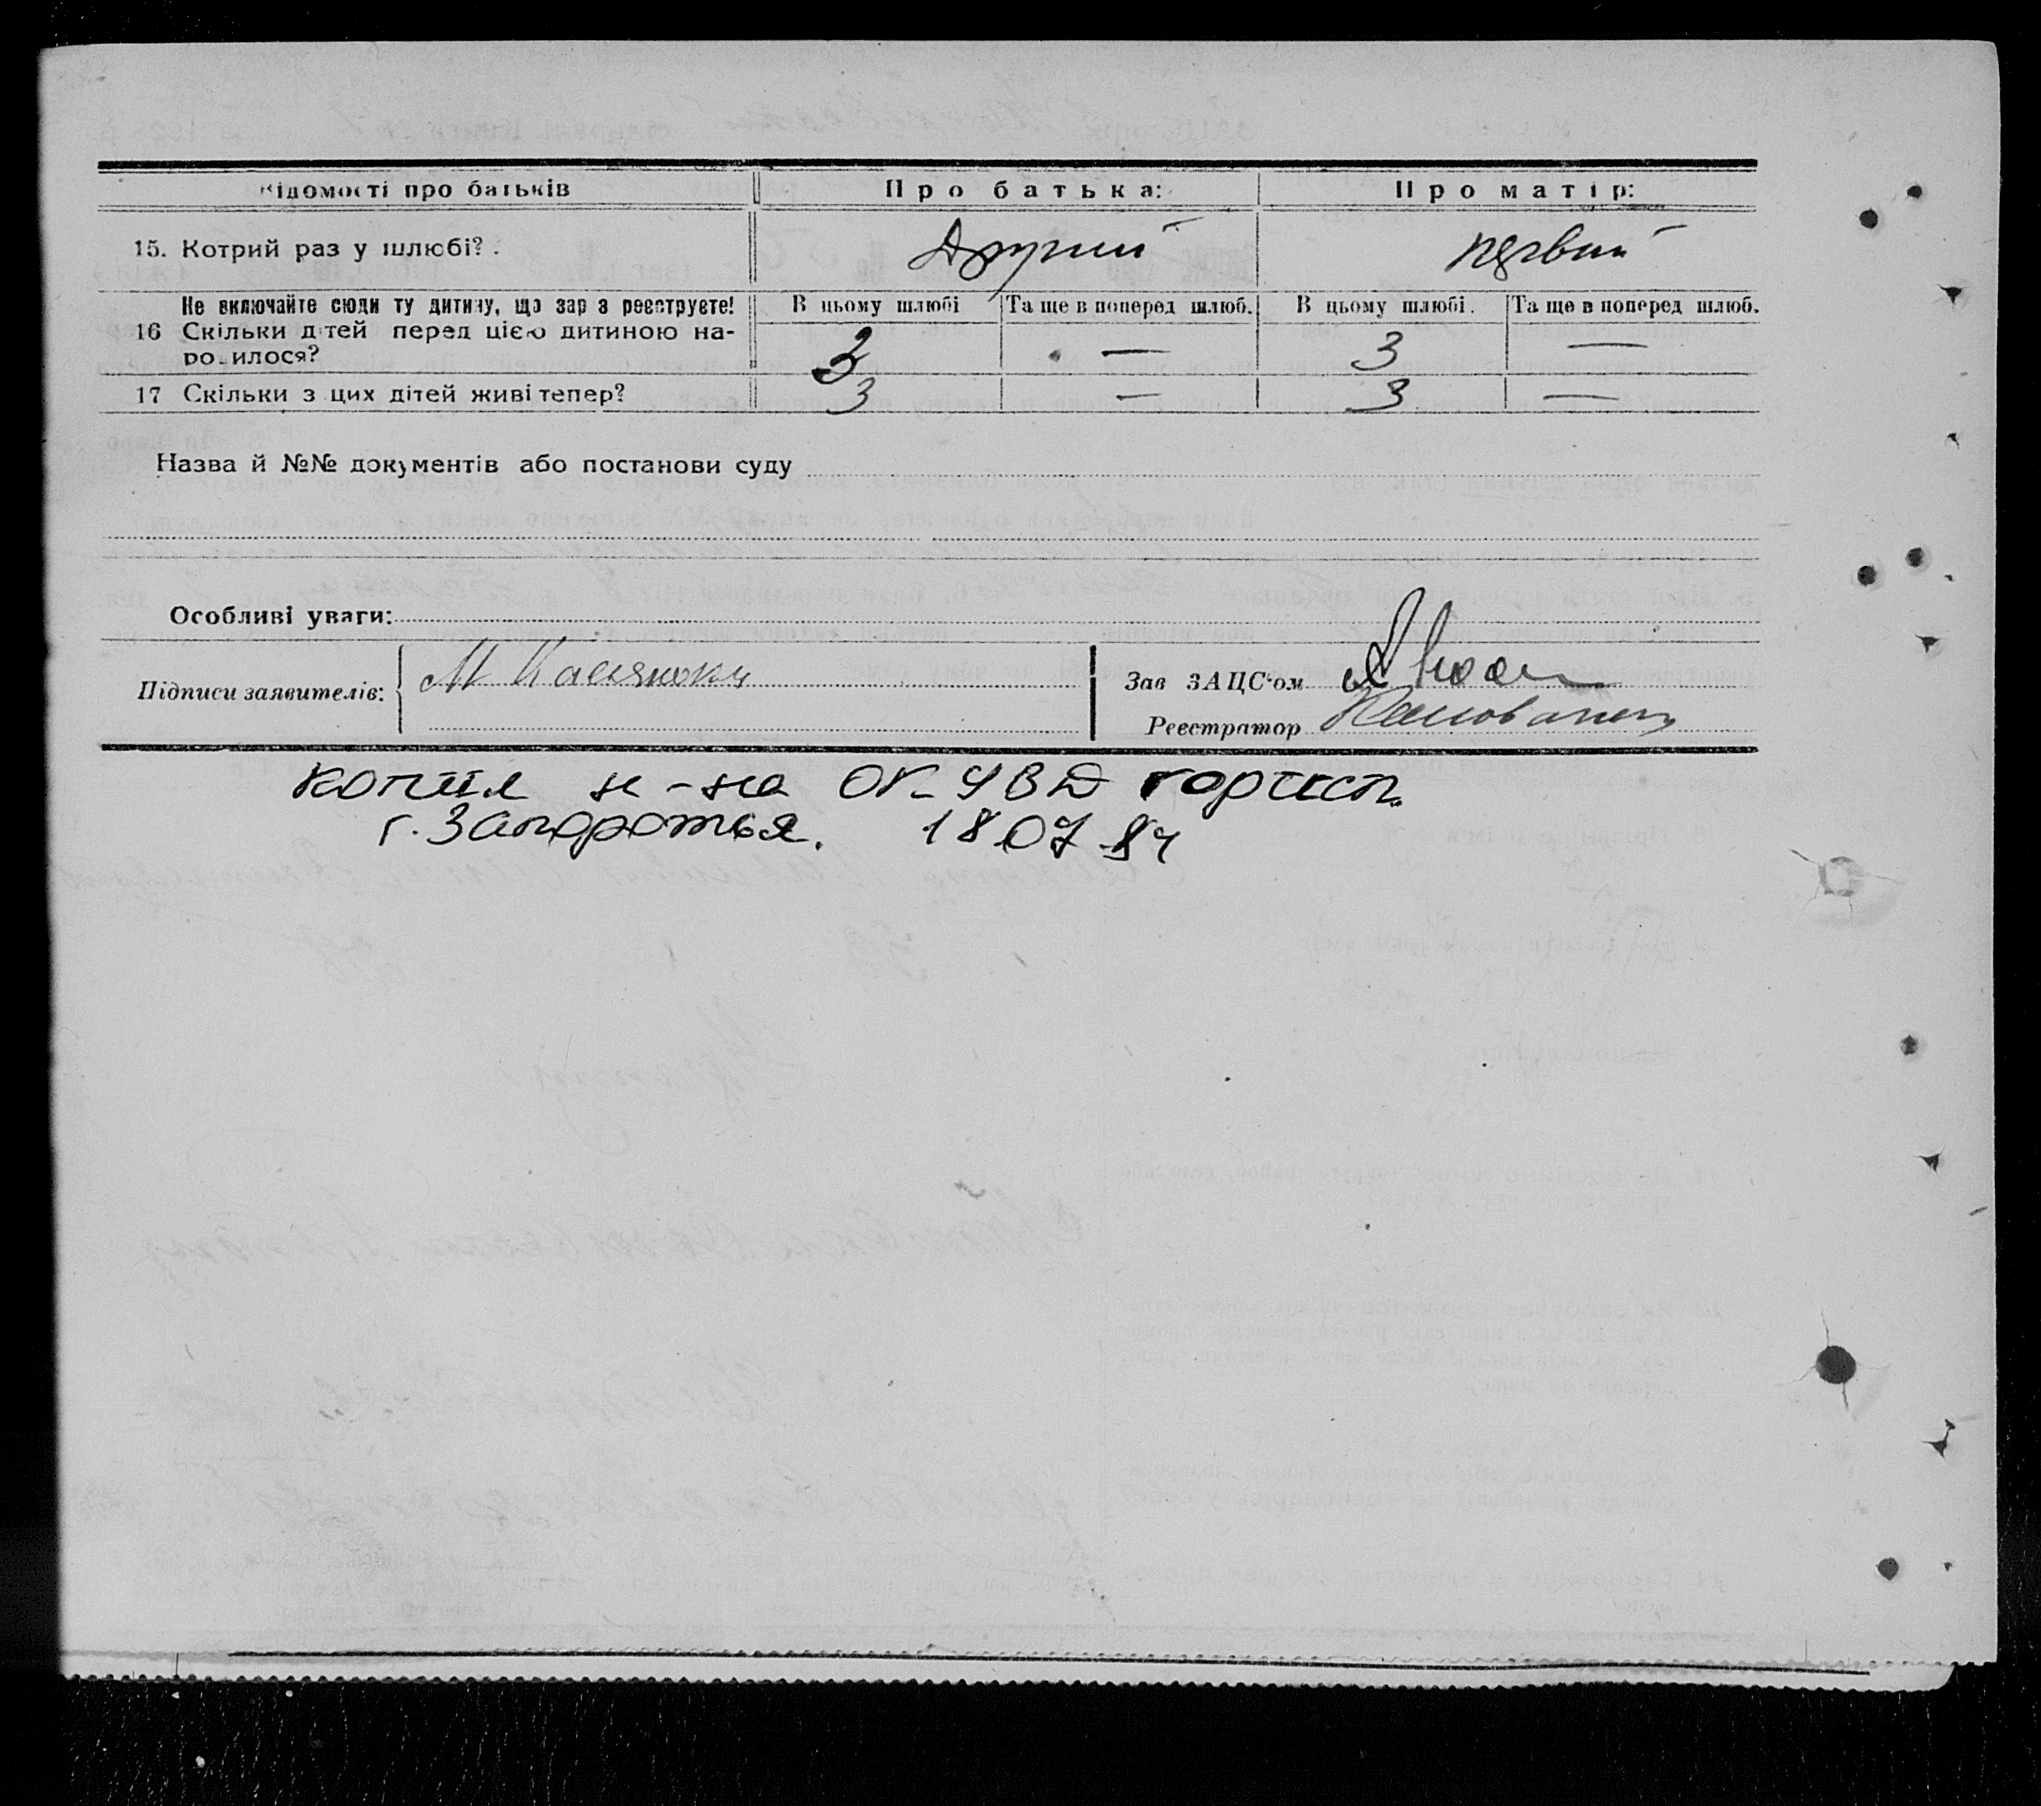 Відомості про батьків
Про батька:
Про матір:
15. Котрий раз у шлюбі?
Другий
первий
Не включайте сюди ту дитину, що зараз реєструєте!
В цьому шлюбі
Та ще в поперед шлюб.
В цьому шлюбі.
Та ще в поперед шлюб.
16 Скільки дітей перед цією дитиною на-
родилося?
3
—
3
—
17 Скільки з цих дітей живі тепер?
3
—
3
—
Назва й №№ документів або постанови суду
Особливі уваги:
Підписи заявителів:
М
Зав ЗАЦС'ом
Реєстратор
копия н-на ОК УВД горисп.
г. Запорожья. 18 07 84